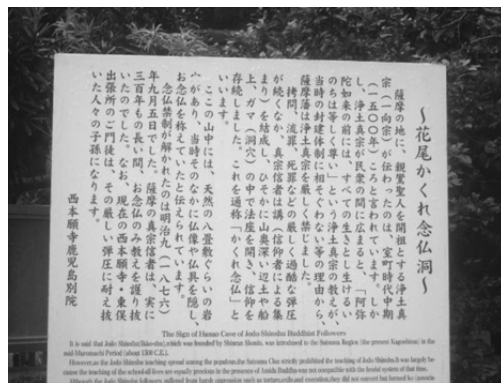 ～花尾かくれ念仏洞～
薩摩の地に、親鸞聖人を開祖とする浄土真
宗（一向宗）が伝わったのは、室町時代中期
（一五〇〇年）ころと言われています。しか
し、浄土真宗が民衆の間に広まると、「阿弥
陀如来の前には、すべての生きとし生けるい
のちは等しく尊い」という浄土真宗の教えが、
当時の封建体制に相そぐわない等の理由から、
薩摩藩は浄土真宗を厳しく禁じました。
拷問、流罪、死罪などの厳しく過酷な弾圧
が続くなか、真宗信者は講（信仰者による集
まり）を結成し、ひそかに山奥深い辺土や船
上、ガマ（洞穴）の中で法座を開き、信仰を
存続しました。これを通称「かくれ念仏」と
いいます。
ここの山中には、天然の八畳敷ぐらいの岩
穴があり、当時そのなかに仏像や仏具を隠し、
お念仏を称えていたと伝えられています。
念仏禁制が解かれたのは明治九（一八七六）
年九月五日でした。薩摩の真宗信者は、実に
三百年もの長い間、お念仏のみ教えを護り抜
いたのでした。なお、現在の西本願寺・東俣
出張所のご門徒は、その厳しい弾圧に耐え抜
いた人々の子孫になります。
西本願寺鹿児島別院
The Sign of Hanao Cave of Jodo Shinshu Buddhist Followers
It is said that Jodo Shinshu(Ikko-shu),which was founded by Shinran Shonin, was introduced to the Satsuma Region (the present Kagoshima) in the
mid-Muromachi Period (about 1500 C.E.).
However,as the Jodo Shinshu teaching spread among the populous,the Satsuma Clan strictly prohibited the teaching of Jodo Shinshu.It was largely be-
cause the teaching of the school-all lives are equally precious in the presence of Amida Buddha-was not compatible with the feudal system of that time.